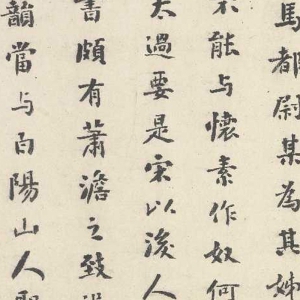 馬都尉某為其姊
能与懷素作奴何
太過要是宋以後人
書頗有蕭澹之致
韻當与白陽山人